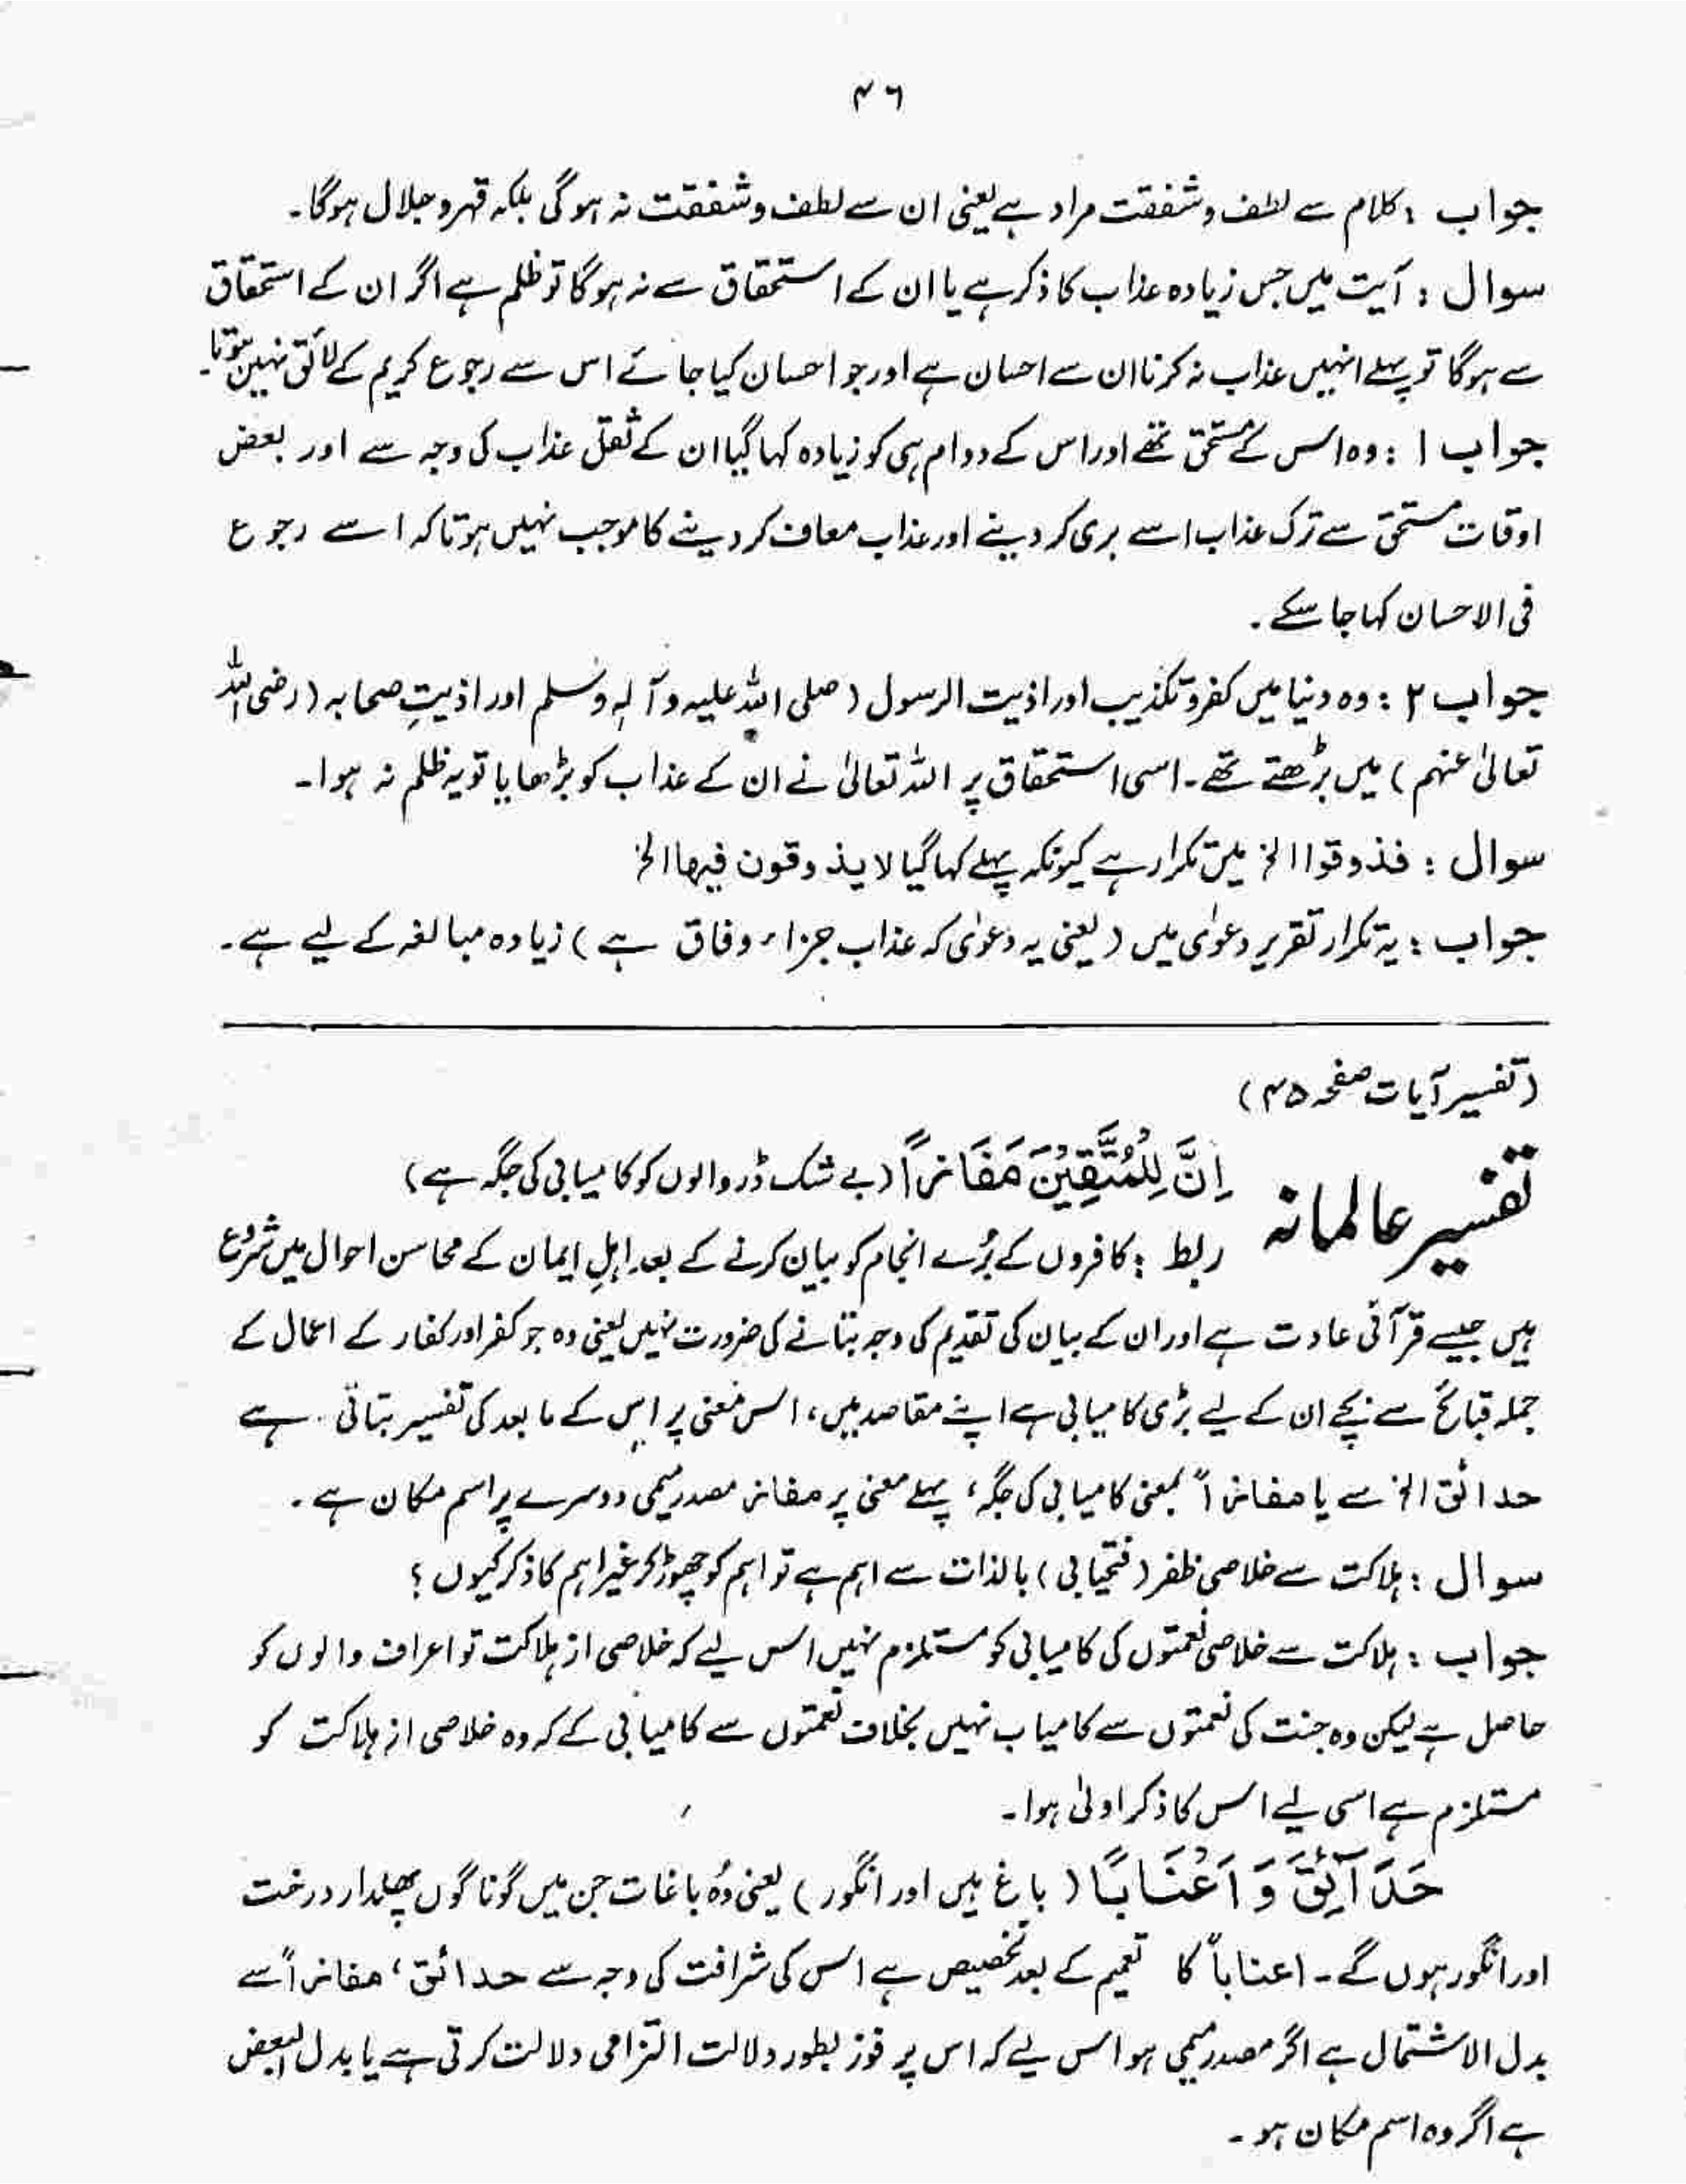 ۴۶
جواب : کلام سے لطف و شفقت مراد ہے یعنی ان سے لطف و شفقت نہ ہوگی بلکہ قہر و جلال ہوگا۔
سوال : آیت میں جس زیادہ عذاب کا ذکر ہے یا ان کے استحقاق سے نہ ہوگا تو ظلم ہے اگر ان کے استحقاق
سے ہوگا تو پہلے انہیں عذاب نہ کرنا ان سے احسان ہے اور جو احسان کیا جائے اس سے رجوع کریم کے لائق نہیں ہوتا۔
جواب ۱ : وہ اس کے مستحق تھے اور اس کے دوام ہی کو زیادہ کہا گیا ان کے ثقل عذاب کی وجہ سے اور بعض
اوقات مستحق سے ترک عذاب اسے بری کر دینے اور عذاب معاف کر دینے کا موجب نہیں ہوتا کہ اسے رجوع
فی الاحسان کہا جا سکے۔
جواب ۲ : وہ دنیا میں کفر و تکذیب اور اذیت الرسول (صلی اللہ علیہ وآلہ وسلم اور اذیتِ صحابہ (رضی اللہ
تعالیٰ عنہم) میں بڑھتے تھے۔ اسی استحقاق پر اللہ تعالیٰ نے ان کے عذاب کو بڑھایا تو یہ ظلم نہ ہوا۔
سوال : فذوقوا الخ میں تکرار ہے کیونکہ پہلے کہا گیا لا یذوقون فیھا الخ
جواب : یہ تکرار تقریر دعوٰی میں (یعنی یہ دعوٰی کہ عذاب جزاء وفاق ہے) زیادہ مبالغہ کے لیے ہے۔
(تفسیر آیات صفحہ ۴۵)
تفسیر عالمانہ اِنَّ لِلْمُتَّقِیْنَ مَفَازاً (بے شک ڈر والوں کو کامیابی کی جگہ ہے)
ربط : کافروں کے بُرے انجام کو بیان کرنے کے بعد اہلِ ایمان کے محاسن احوال میں شروع
ہیں جیسے قرآنی عادت ہے اور ان کے بیان کی تقدیم کی وجہ بتانے کی ضرورت نہیں یعنی وہ جو کفر اور کفار کے اعمال کے
جملہ قبائح سے بچے ان کے لیے بڑی کامیابی ہے اپنے مقاصد میں، اس معنی پر اس کے مابعد کی تفسیر بتاتی ہے
حدائق الخ سے یا مفازاً بمعنی کامیابی کی جگہ، پہلے معنی پر مفاز مصدر میمی دوسرے پر اسم مکان ہے۔
سوال : ہلاکت سے خلاصی ظفر (فتحیابی) بالذات سے اہم ہے تو اہم کو چھوڑ کر غیر اہم کا ذکر کیوں؟
جواب : ہلاکت سے خلاصی نعمتوں کی کامیابی کو مستلزم نہیں اس لیے کہ خلاصی از ہلاکت تو اعراف والوں کو
حاصل ہے لیکن وہ جنت کی نعمتوں سے کامیاب نہیں بخلاف نعمتوں سے کامیابی کے کہ وہ خلاصی از ہلاکت کو
مستلزم ہے اسی لیے اس کا ذکر اولیٰ ہوا۔
حَدَآئِقَ وَ اَعْنَابًا (باغ ہیں اور انگور) یعنی وُہ باغات جن میں گوناگوں پھلدار درخت
اور انگور ہوں گے۔ اعناباً کا تعمیم کے بعد تخصیص ہے اس کی شرافت کی وجہ سے حدائق، مفازاً سے
بدل الاشتمال ہے اگر مصدر میمی ہو اس لیے کہ اس پر فوز بطور دلالت التزامی دلالت کرتی ہے یا بدل البعض
ہے اگر وہ اسم مکان ہو۔